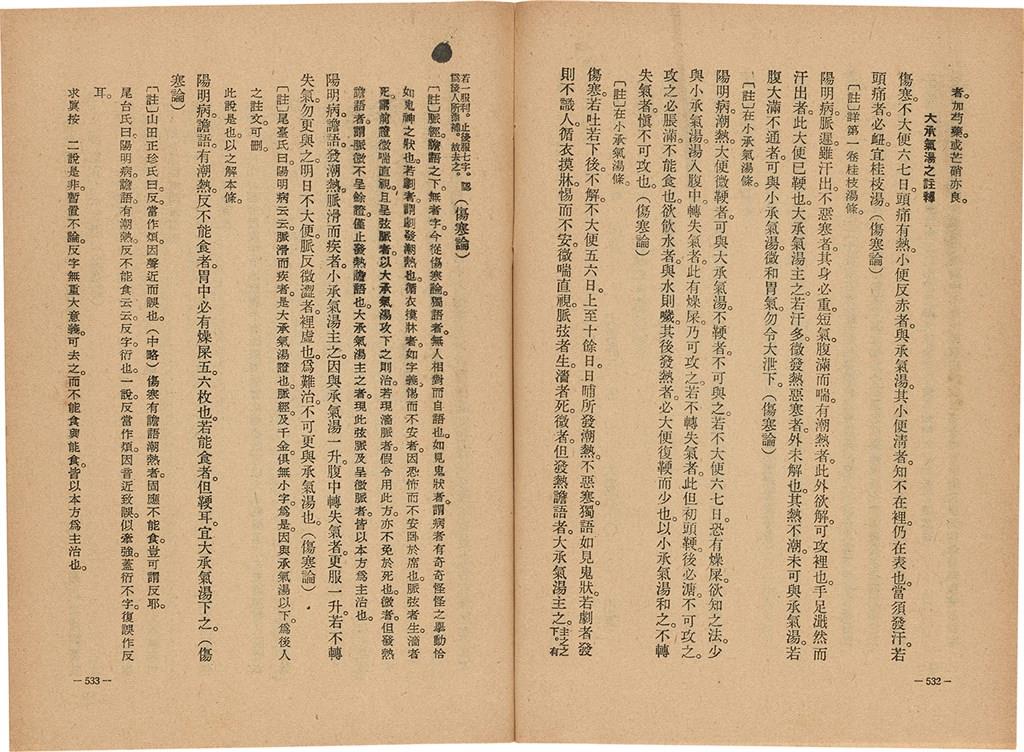 者。加芍藥或芒硝亦良。
大承氣湯之註釋
傷寒不大便六七日。頭痛有熱。小便反赤者。與承氣湯。其小便清者。知不在裡。仍在表也。當須發汗。若
頭痛者必衄。宜桂枝湯。（傷寒論）
〔註〕詳第一卷桂枝湯條。
陽明病脈遲。雖汗出。不惡寒者。其身必重。短氣腹滿而喘。有潮熱者。此外欲解。可攻裡也。手足濈然而
汗出者。此大便已鞕也。大承氣湯主之。若汗多微發熱惡寒者。外未解也。其熱不潮。未可與承氣湯。若
腹大滿不通者。可與小承氣湯。微和胃氣。勿令大泄下。（傷寒論）
〔註〕在小承氣湯條。
陽明病潮熱。大便微鞕者。可與大承氣湯。不鞕者。不可與之。若不大便六七日。恐有燥屎。欲知之法。少
與小承氣湯。湯入腹中轉失氣者。此有燥屎。乃可攻之。若不轉失氣者。此但初頭鞕後必溏。不可攻之。
攻之必脹滿不能食也。欲飲水者。與水則噦。其後發熱者。必大便復鞕而少也。以小承氣湯和之。不轉
失氣者。愼不可攻也。（傷寒論）
〔註〕在小承氣湯條。
傷寒若吐若下後不解。不大便五六日。上至十餘日。日晡所發潮熱。不惡寒。獨語如見鬼狀。若劇者。發
則不識人。循衣摸牀。惕而不安。微喘直視。脈弦者生。濇者死。微者但發熱譫語者。大承氣湯主之。主之之下。有
— 532 —
若一服利。止後服七字。認爲後人所添補。故去之。（傷寒論）
〔註〕脈經譫語之下。無者字。今從傷寒論。獨語者。無人相對而自語也。如見鬼狀者。謂病者有奇奇怪怪之擧動。恰
如鬼神之狀也。若劇者。謂劇發潮熱也。循衣摸牀者。如字義。惕而不安者。因恐怖而不安臥於席也。脈弦者生。濇者
死。謂前證微喘直視。且呈弦脈者。以大承氣湯攻下之則治。若現濇脈者。假令用此方。亦不免於死也。微者但發熱
譫語者。謂脈微不呈餘證。僅止發熱譫語也。大承氣湯主之者。現此弦脈及呈微脈者。皆以本方爲主治也。
陽明病。譫語發潮熱。脈滑而疾者。小承氣湯主之。因與承氣湯一升。腹中轉失氣者。更服一升。若不轉
失氣。勿更與之。明日不大便。脈反微澀者。裡虛也。爲難治。不可更與承氣湯也。（傷寒論）
〔註〕尾臺氏曰。陽明病云云。脈滑而疾者。是大承氣湯證也。脈經及千金俱無小字。爲是。因與承氣湯以下。爲後人
之註文。可刪。
此說是也。以之解本條。
陽明病。譫語有潮熱。反不能食者。胃中必有燥屎五六枚也。若能食者。但鞕耳。宜大承氣湯下之。（傷
寒論）
〔註〕山田正珍氏曰。反當作煩。因聲近而誤也。（中略）傷寒有譫語潮熱者。固應不能食。豈可謂反耶。
尾台氏曰。陽明病。譫語有潮熱。反不能食云云。反字衍也。一說反當作煩。因音近致誤。似牽強。蓋衍不字。復誤作反
耳。
求眞按 二說是非。暫置不論。反字無重大意義。可去之。而不能食與能食。皆以本方爲主治也。
— 533 —